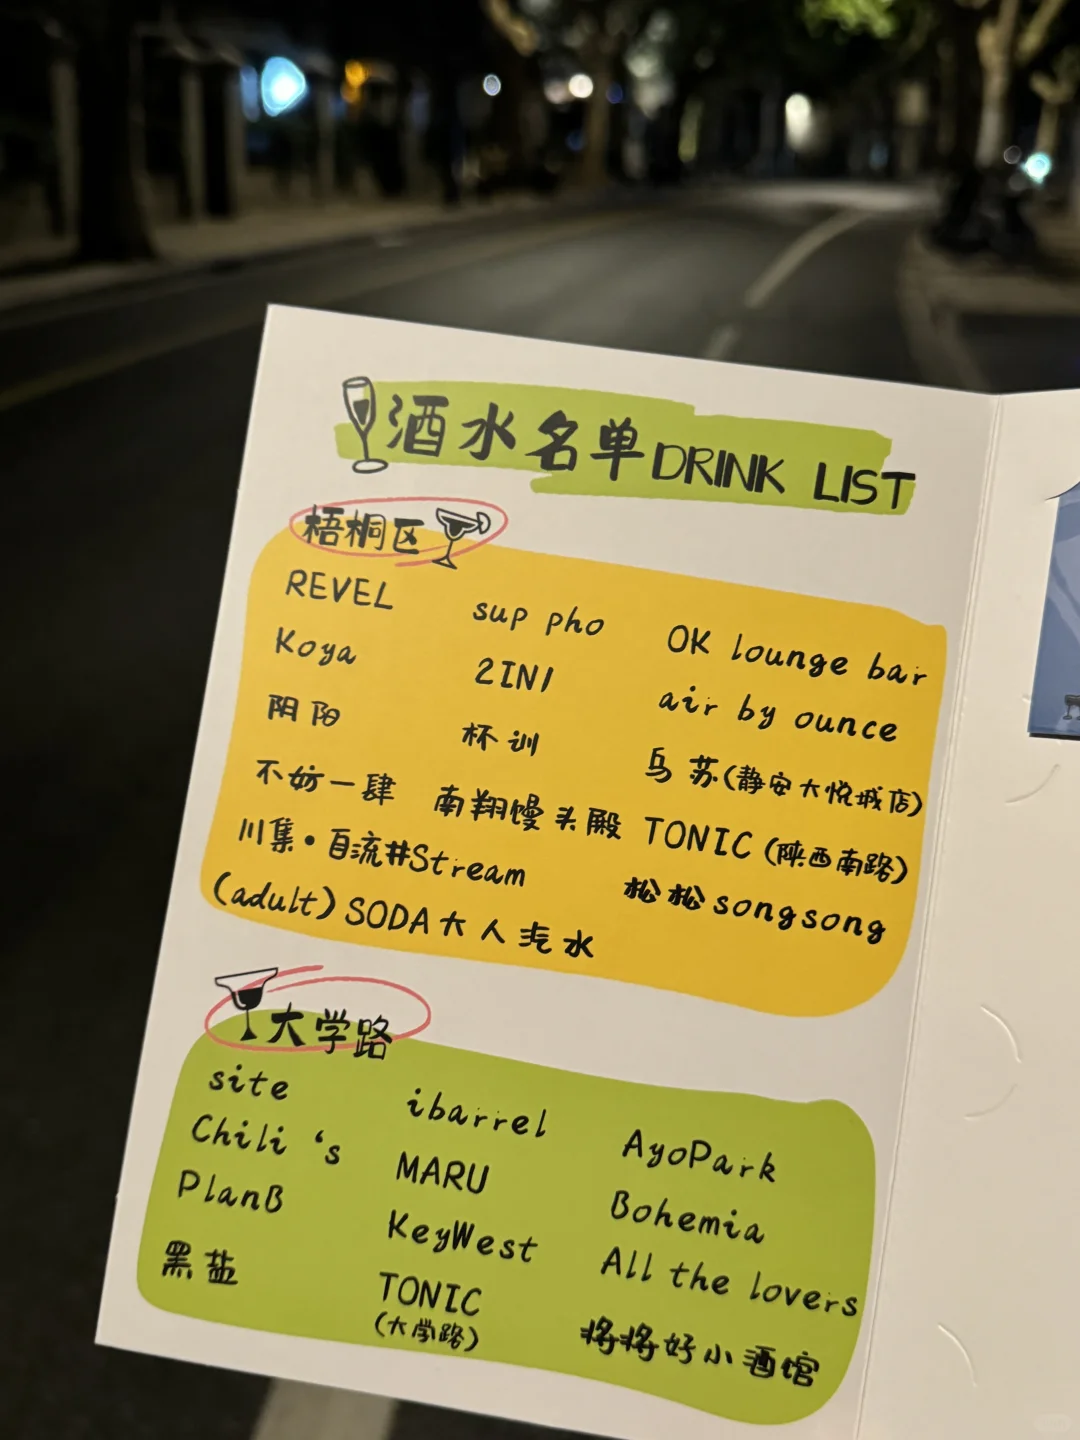 酒水名单 DRINK LIST
梧桐区
REVEL sup pho OK lounge bar
Koya 2IN1 air by ounce
阴阳 杯训 乌苏(静安大悦城店)
不妨一肆 南翔馒头殿 TONIC (陕西南路)
川集·自流井Stream 松松songsong
(adult) SODA大人汽水
大学路
site ibarrel AyoPark
Chili 's MARU Bohemia
PlanB KeyWest All the lovers
黑盐 TONIC 将将好小酒馆
(大学路)